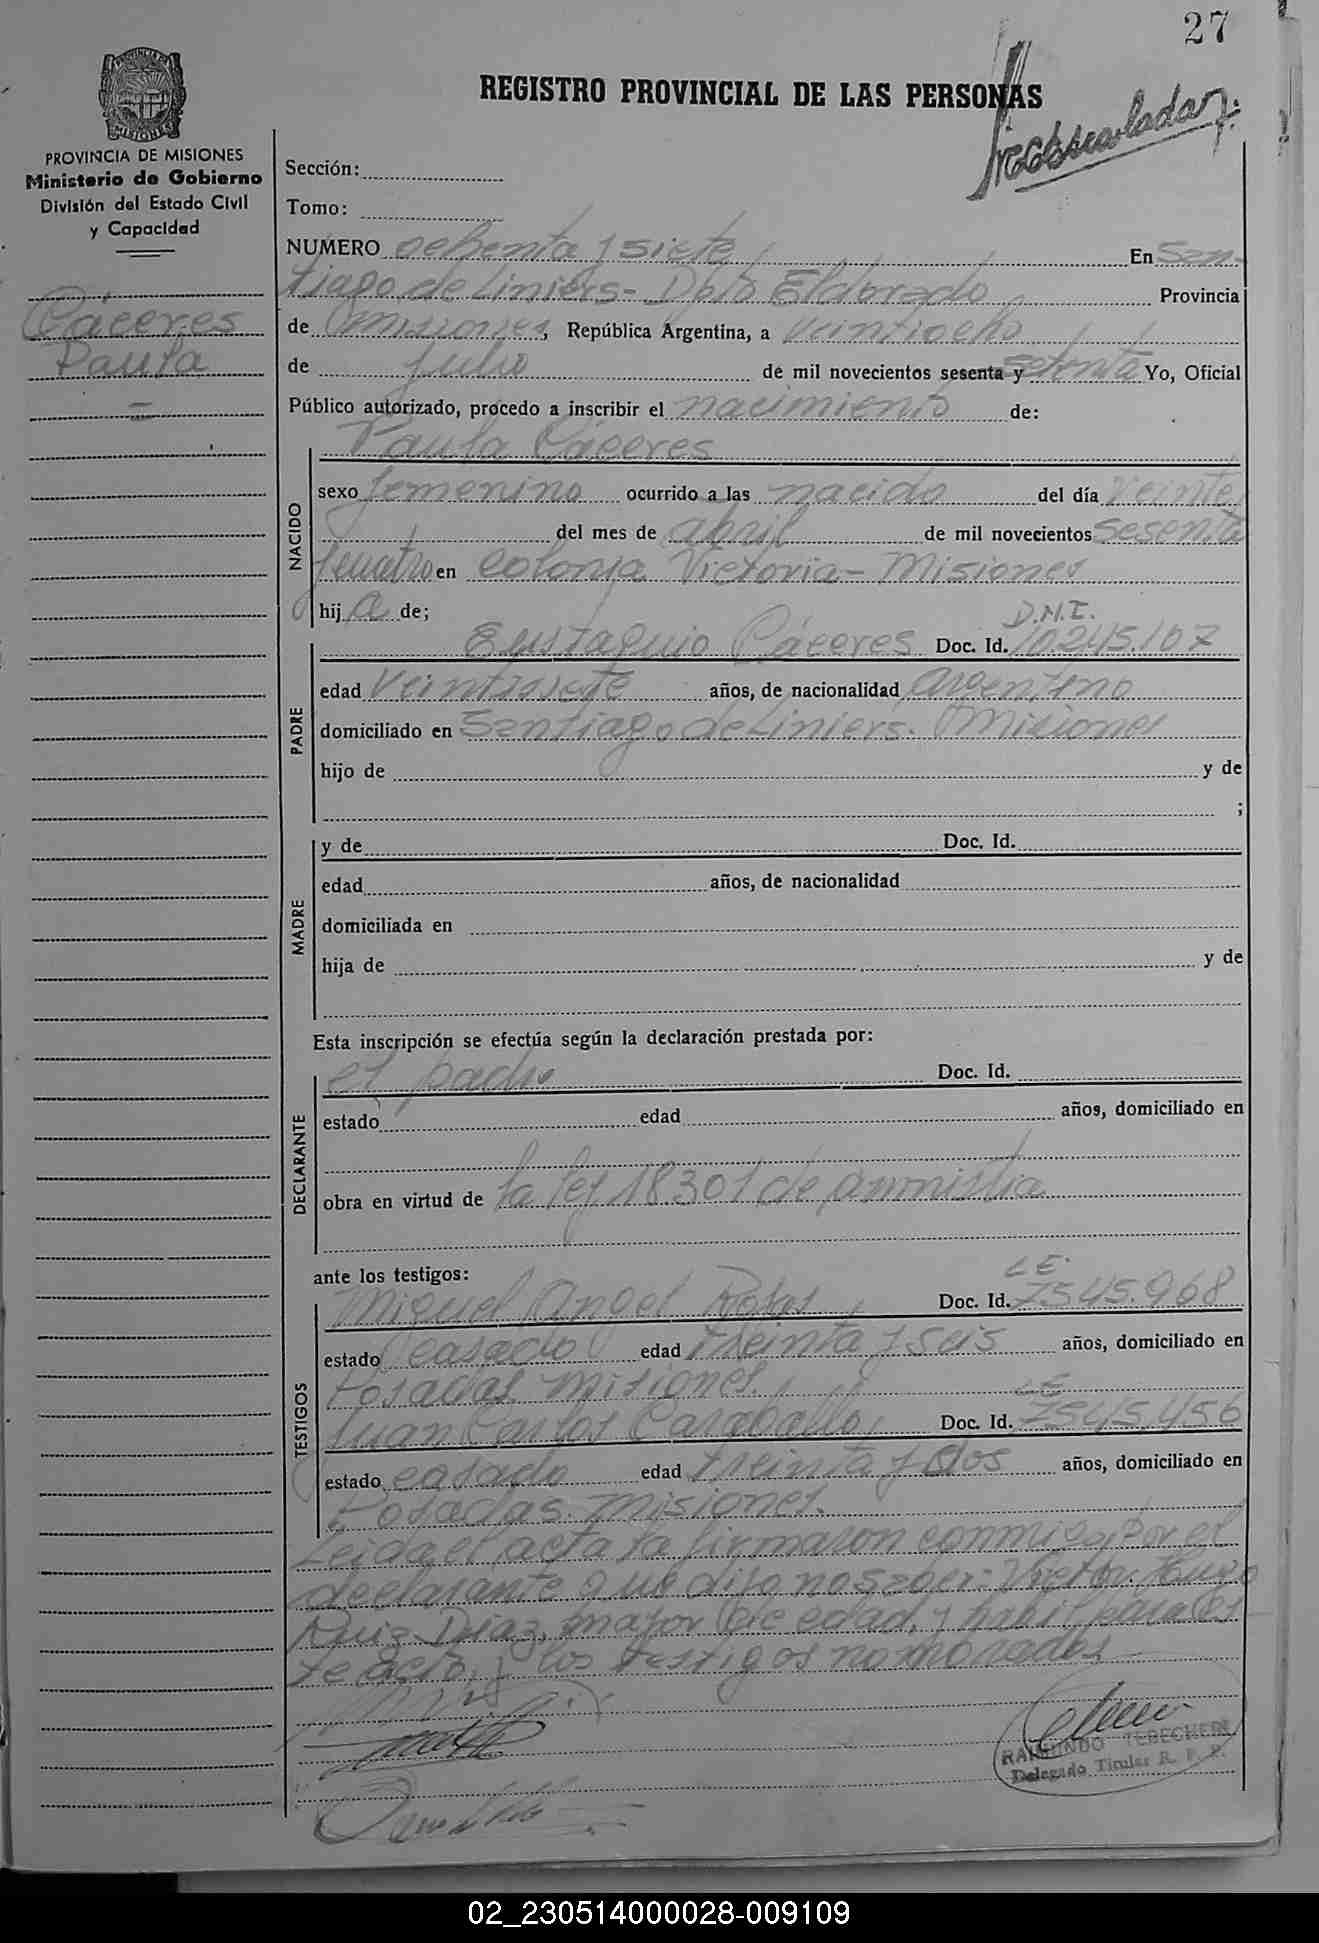 27
REGISTRO PROVINCIAL DE LAS PERSONAS
PROVINCIA DE MISIONES
Ministerio de Gobierno
División del Estado Civil
y Capacidad
Cáceres
Paula
Sección:
Tomo:
NUMERO ochenta y siete En San-
tiago de Liniers- Dpto Eldorado Provincia
de Misiones, República Argentina, a veintiocho
de julio de mil novecientos sesenta y setenta Yo, Oficial
Público autorizado, procedo a inscribir el nacimiento de:
NACIDO
Paula Cáceres
sexo femenino ocurrido a las nacido del día veinte
del mes de abril de mil novecientos sesenta
y cuatro en Colonia Victoria- Misiones
hij a de;
D.N.I.
PADRE
Eustaquio Cáceres Doc. Id. 10.245.107
edad veintisiete años, de nacionalidad argentino
domiciliado en Santiago de Liniers. Misiones
hijo de y de
;
MADRE
y de Doc. Id.
edad años, de nacionalidad
domiciliada en
hija de y de
Esta inscripción se efectúa según la declaración prestada por:
DECLARANTE
el padre Doc. Id.
estado edad años, domiciliado en
obra en virtud de la ley 18301 de amnistia
ante los testigos:
L E.
TESTIGOS
Miguel Angel Rosas Doc. Id. 7545.968
estado casado edad treinta y seis años, domiciliado en
Posadas Misiones.
L E
Juan Carlos Caraballo, Doc. Id. 7545.456
estado casado edad treinta y dos años, domiciliado en
Posadas. Misiones.
Leida el acta la firmaron conmigo, por el
declarante que dijo no saber: Victor Hugo
Ruiz Diaz, mayor de edad, y habil para es-
te acto, y los testigos nombrados
RAIMUNDO TEBECHERI
Delegado Titular R. P. P.
02_230514000028-009109